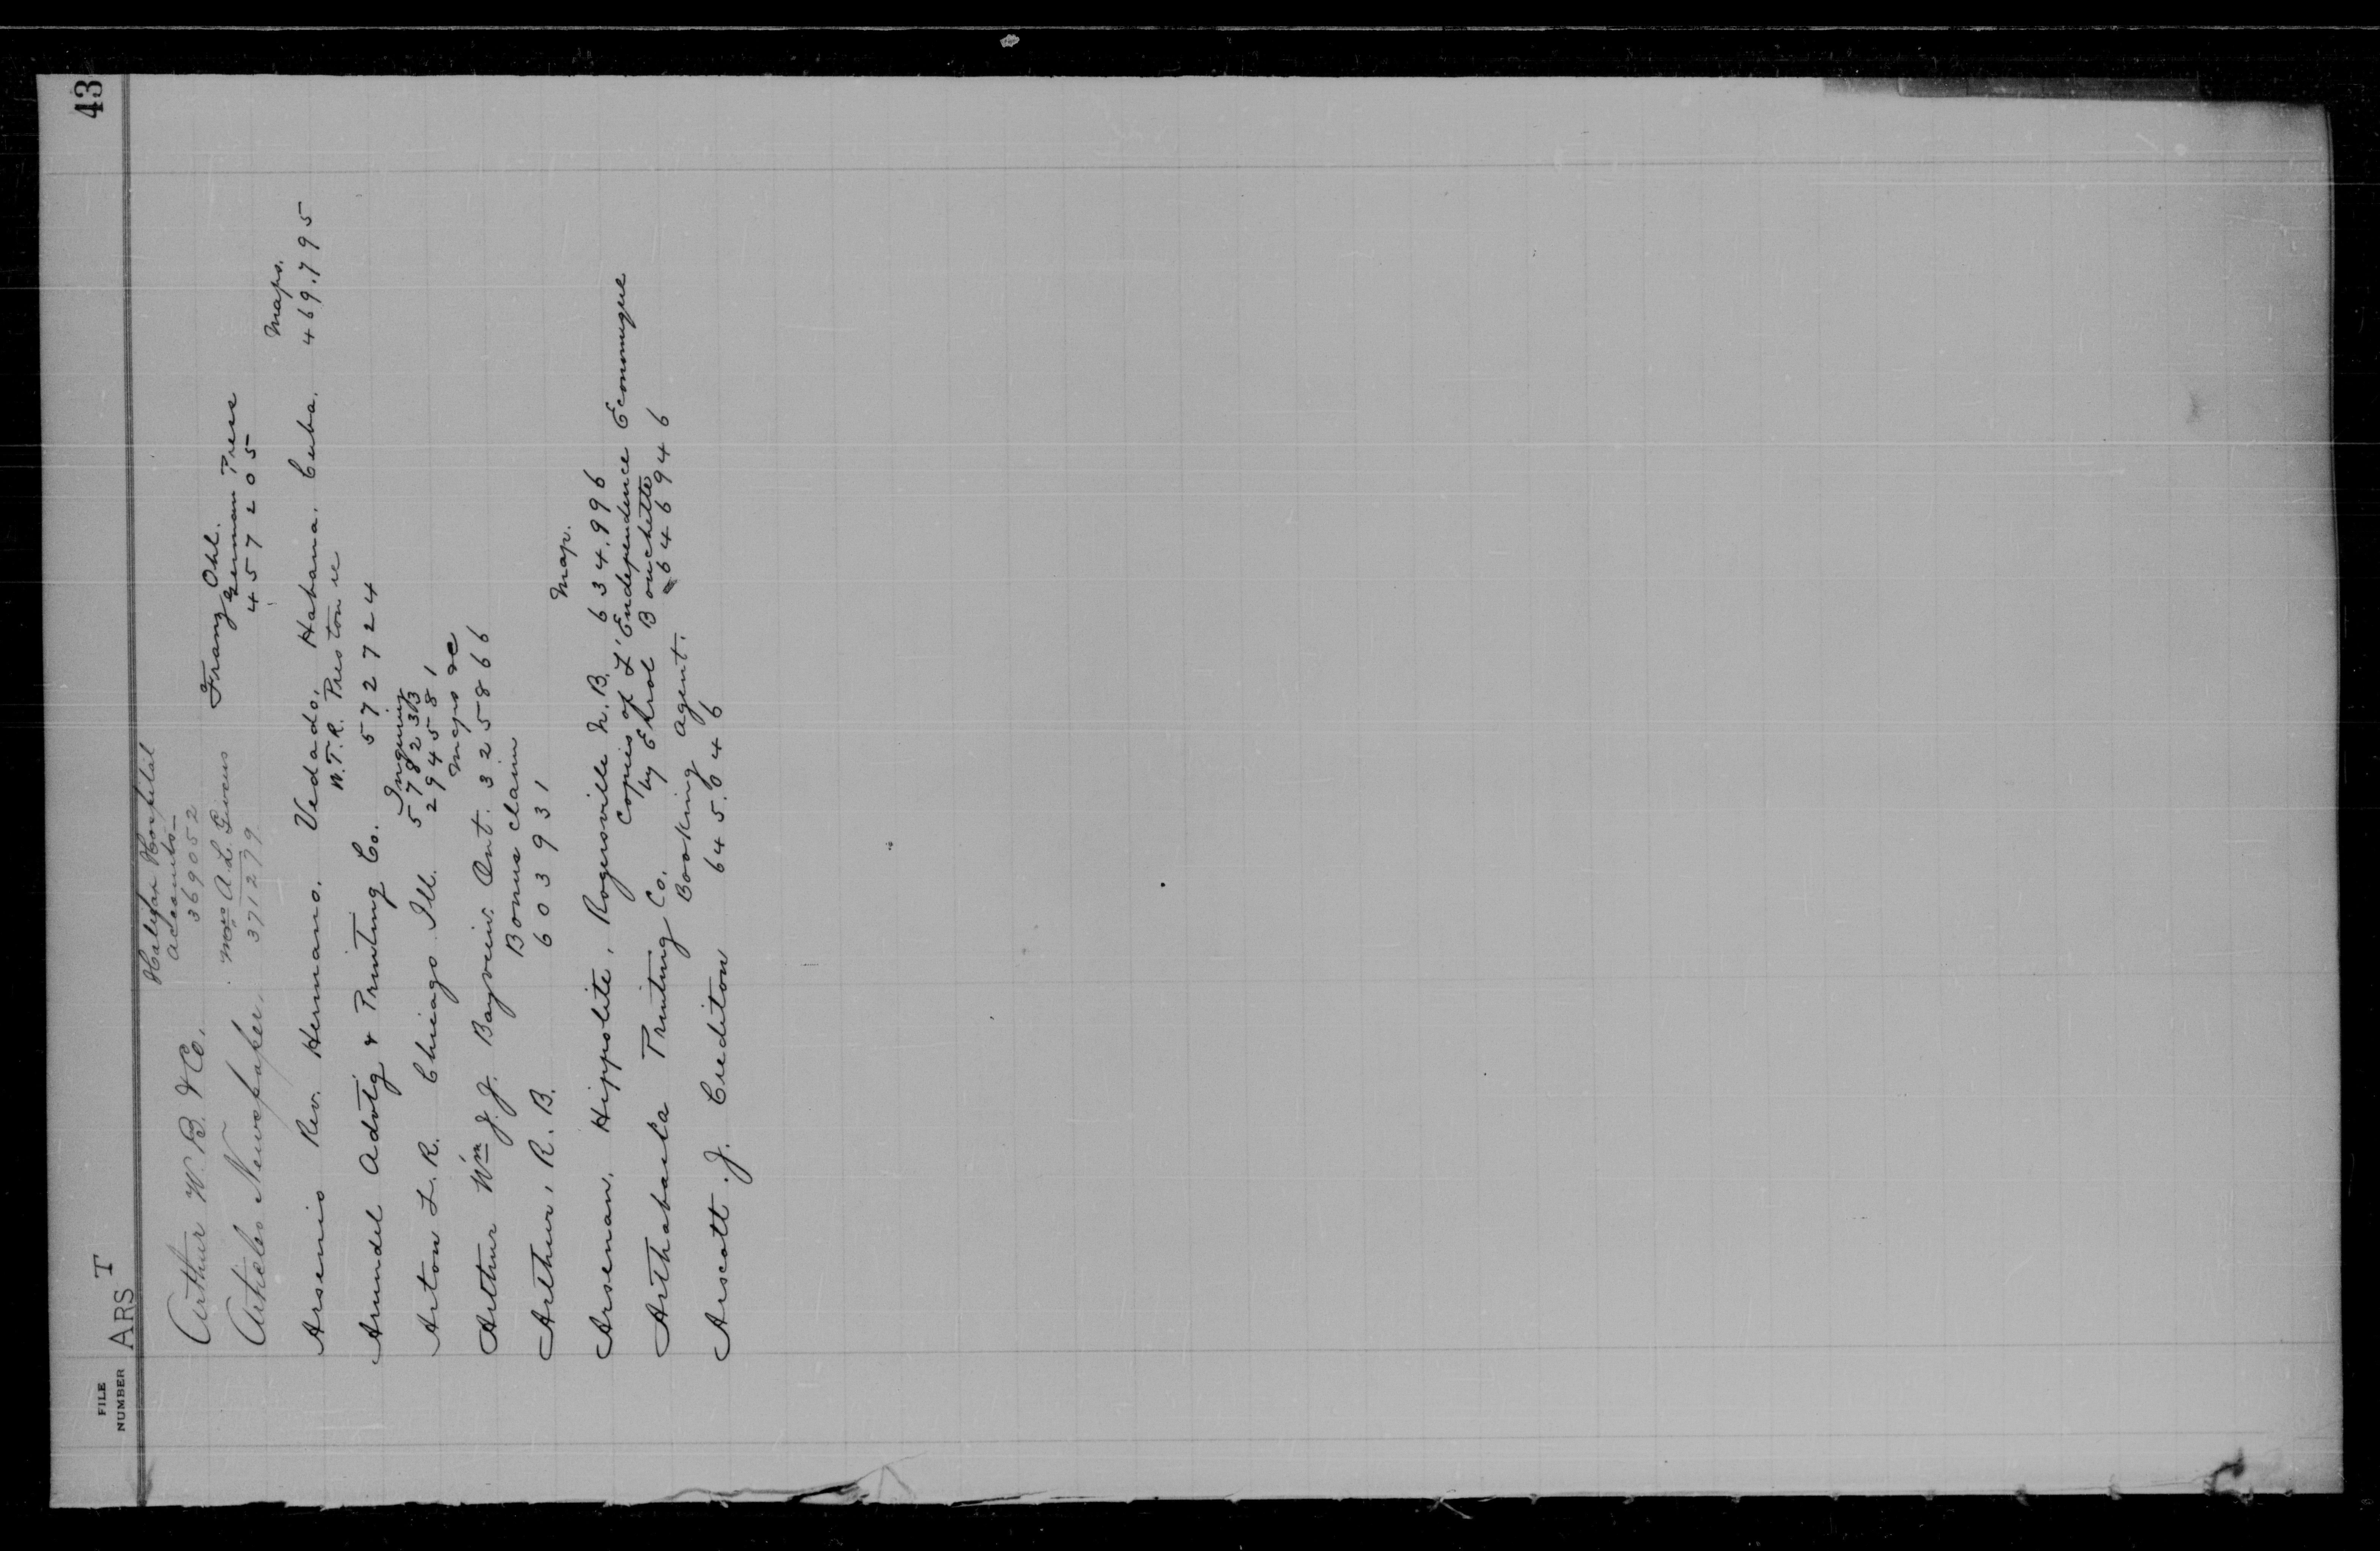 43
FILE
NUMBER
ARS T
Halifax Hospital
Accounts
Arthur W. B. & Co. 369052
Articles Newspaper, Mrs A. L. Givens Franz Ohl.
371279 German Press
457205
Maps.
Arsenis Rev. Hermano. Vedado, Habana, Cuba. 469,795
W.T.R. Preston re
Arundel Advtg & Printing Co. 572724
Inquiring
Arton L. R. Chicago Ill. 578233
294581
Maps re
Arthur Wm J. J. Bayview, Ont. 325866
Bonus claim
Arthur, R. B. 603931
Map.
Arsenan, Hippolite, Rogersville N.B. 634,996
Copies of L'Endependence Economque
by Errol Bouchette
Arthabaska Printing Co. 646946
Booking Agent.
Arscott. J. Crediton 645.646